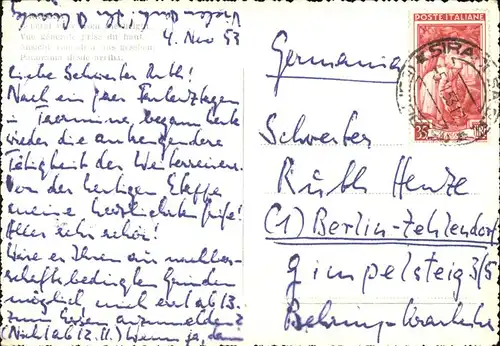 Vielen Dank! Ihr
4. Nov 53
Vue générale prise du haut.
Panorama desde arriba.
Liebe Schwester Ruth!
Nach ein paar Faulenztagen
in Taormina, begann heute
wieder die anstrengendere
Tätigkeit des Weiterreisens.
Von der heutigen Etappe
meine herzlichsten Grüße!
Alles sehr schön!
Wäre es Ihnen aus
möglich, mich erst ab 13.
zum Essen anzumelden?
(Nicht ab 12.11.) Wenn ja, dann
POSTE ITALIANE
35
SIRA
Germania
Schwester
Ruth Henze
(1) Berlin-Zehlendorf
Gimpelsteig 3/5
Behring-Krankenhaus